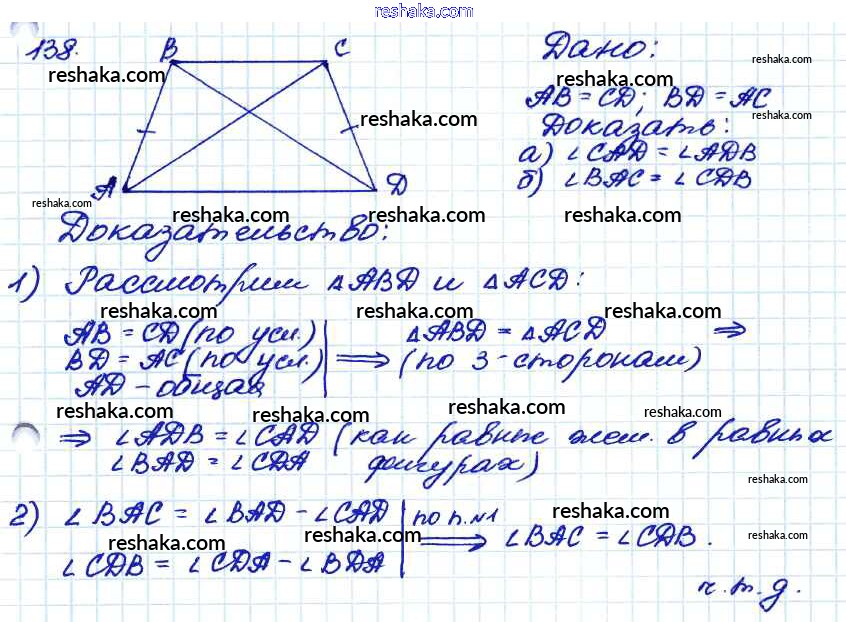 reshaka.com
138.
B
C
reshaka.com
reshaka.com
A
D
reshaka.com
Дано:
reshaka.com
reshaka.com
AB = CD; BD = AC
reshaka.com
Доказать:
а) ∠CAD = ∠ADB
б) ∠BAC = ∠CDB
reshaka.com reshaka.com reshaka.com
Доказательство:
1) Рассмотрим △ABD и △ACD:
reshaka.com reshaka.com reshaka.com
AB = CD (по усл.)
BD = AC (по усл.)
AD - общая
⇒ △ABD = △ACD ⇒
(по 3-сторонам)
reshaka.com reshaka.com reshaka.com reshaka.com
⇒ ∠ADB = ∠CAD (как равные элем. в равных
∠BAD = ∠CDA фигурах)
reshaka.com
2) ∠BAC = ∠BAD - ∠CAD
reshaka.com reshaka.com reshaka.com reshaka.com
∠CDB = ∠CDA - ∠BDA
по п.№1
⇒ ∠BAC = ∠CDB.
ч.т.д.